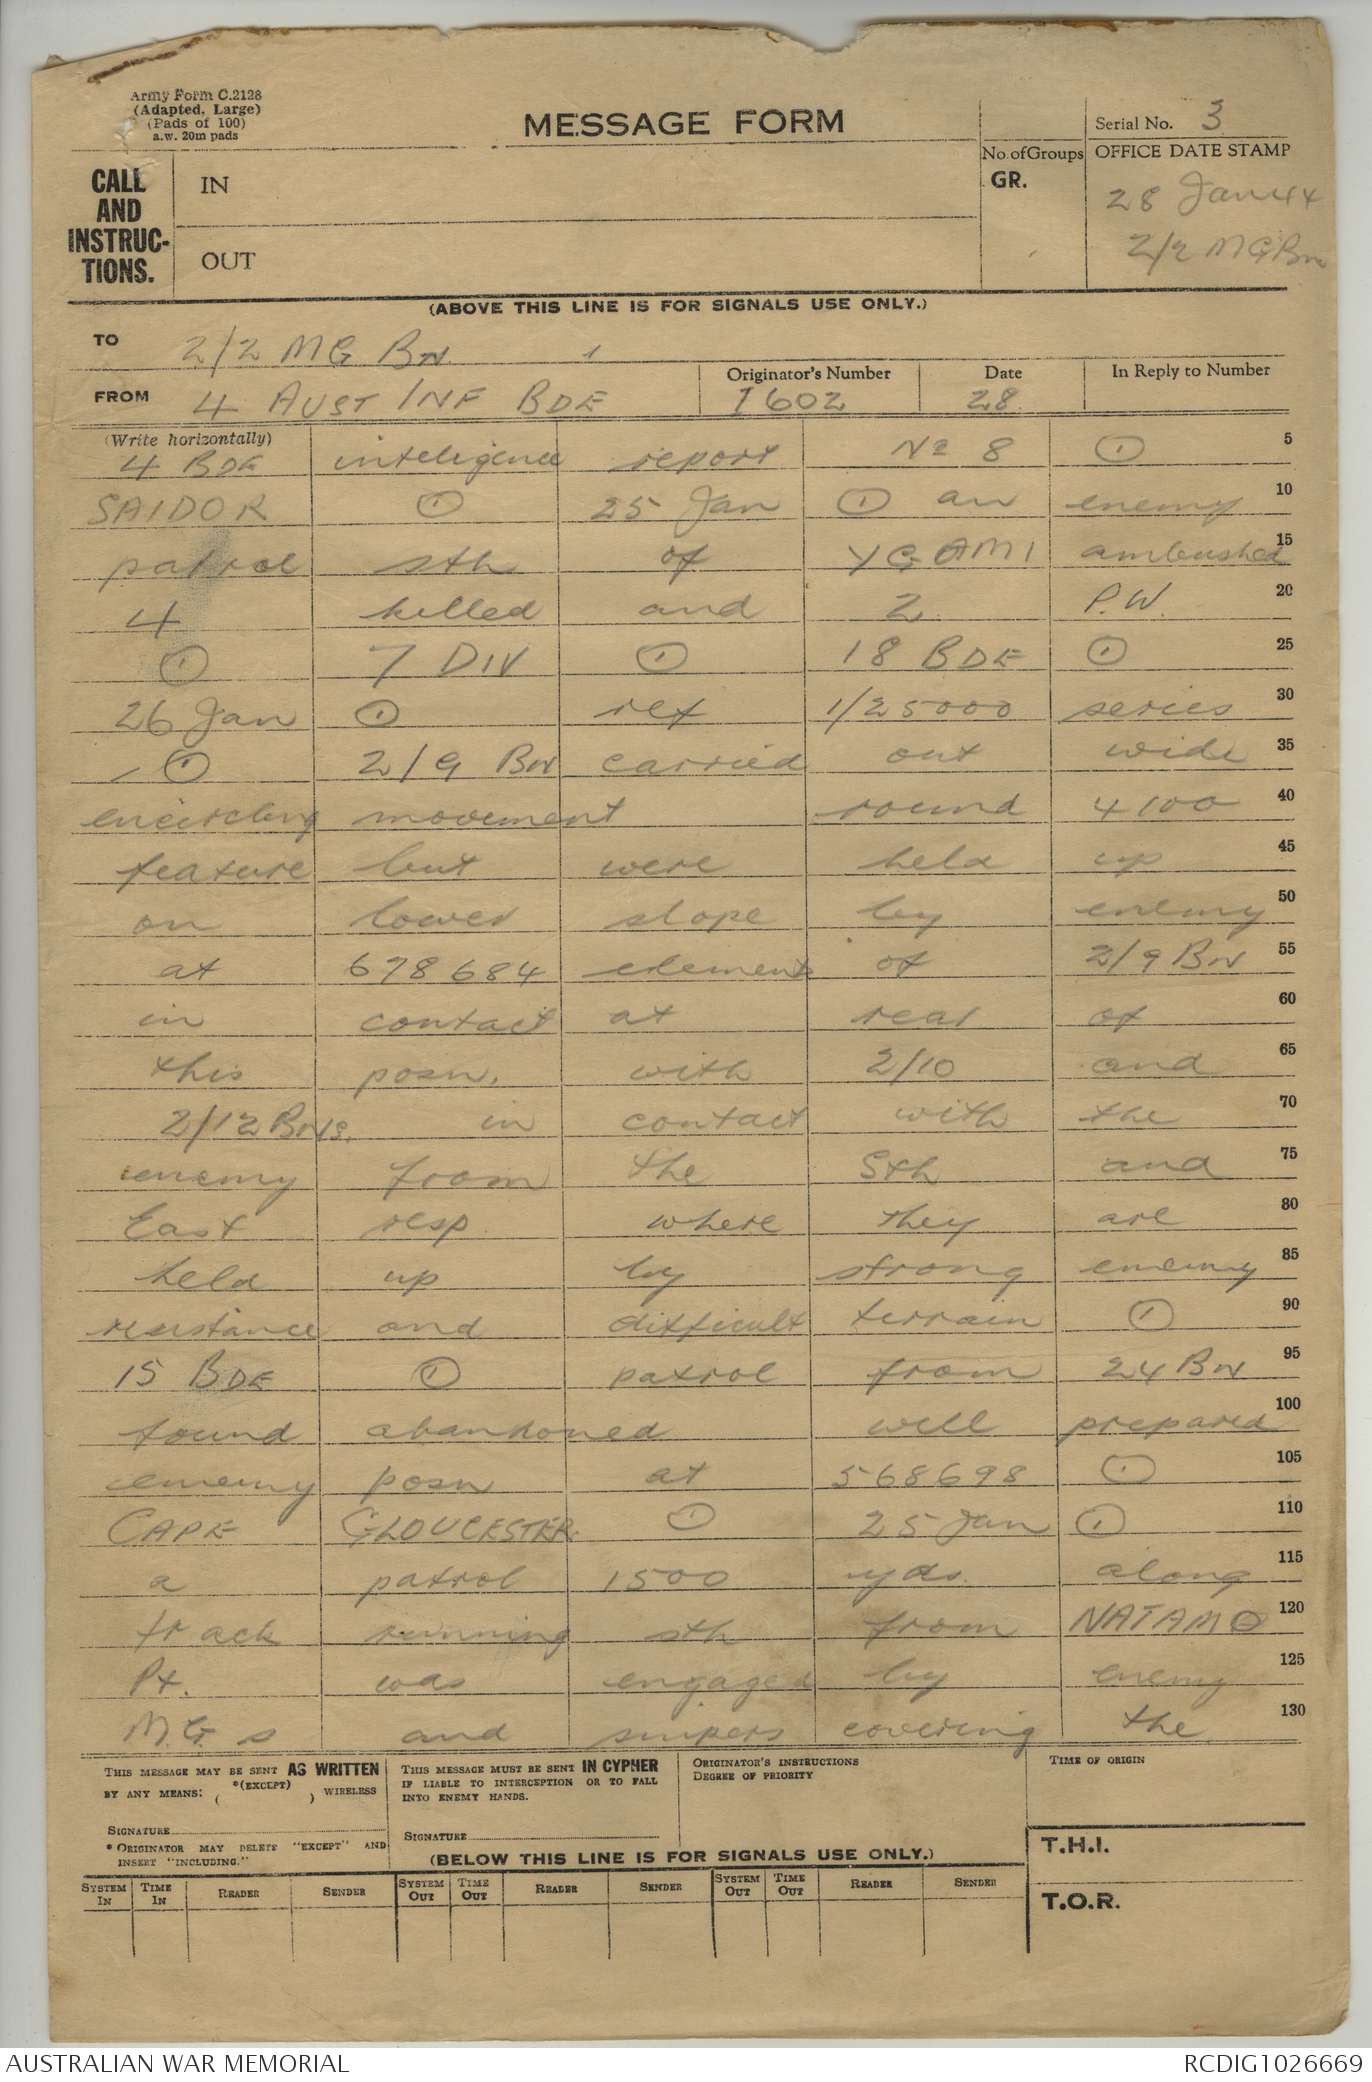 Army Form C.2128
(Adapted, Large)
(Pads of 100)
a.w. 20m pads
MESSAGE FORM
Serial No. 3
No. of Groups
GR.
OFFICE DATE STAMP
28 Jan 44
2/2 MG Bn
CALL AND INSTRUC-TIONS.
IN
OUT
(ABOVE THIS LINE IS FOR SIGNALS USE ONLY.)
TO 2/2 MG BN
FROM 4 AUST INF BDE
Originator's Number
I 602
Date
28
In Reply to Number
(Write horizontally)
4 BDE inteligence report No 8 ① 5
SAIDOR ① 25 Jan ① an enemy 10
patrol sth of YGAMI ambushed 15
4 killed and 2 P.W. 20
① 7 DIV ① 18 BDE ① 25
26 Jan ① ref 1/25000 series 30
① 2/9 BN carried out wide 35
encircling movement round 4100 40
feature but were held up 45
on lower slope by enemy 50
at 678684 elements of 2/9 BN 55
in contact at rear of 60
this posn. with 2/10 and 65
2/12 BNs. in contact with the 70
enemy from the Sth and 75
East resp. where they are 80
held up by strong enemy 85
resistance and difficult terrain ① 90
15 BDE ① patrol from 24 BN 95
found abandoned well prepared 100
enemy posn at 568698 ① 105
CAPE GLOUCESTER ① 25 Jan ① 110
a patrol 1500 yds. along 115
track running sth from NATAMO 120
Pt. was engaged by enemy 125
MG s and snipers covering the 130
THIS MESSAGE MAY BE SENT AS WRITTEN
BY ANY MEANS: *(EXCEPT) ( ) WIRELESS
SIGNATURE
* ORIGINATOR MAY DELETE "EXCEPT" AND
INSERT "INCLUDING."
THIS MESSAGE MUST BE SENT IN CYPHER
IF LIABLE TO INTERCEPTION OR TO FALL
INTO ENEMY HANDS.
SIGNATURE
ORIGINATOR'S INSTRUCTIONS
DEGREE OF PRIORITY
TIME OF ORIGIN
(BELOW THIS LINE IS FOR SIGNALS USE ONLY.)
T.H.I.
T.O.R.
SYSTEM IN TIME IN READER SENDER SYSTEM OUT TIME OUT READER SENDER SYSTEM OUT TIME OUT READER SENDER
AUSTRALIAN WAR MEMORIAL RCDIG1026669